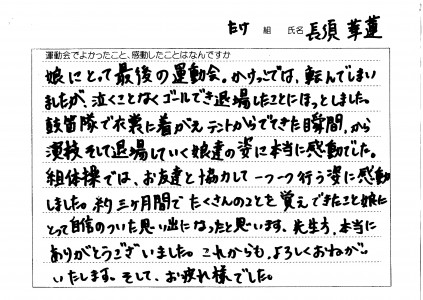 たけ 組 氏名 長須 華蓮
運動会でよかったこと、感動したことはなんですか
娘にとって最後の運動会。かけっこでは、転んでしまい
ましたが、泣くことなくゴールでき退場したことにほっとしました。
鼓笛隊で衣裳に着がえテントからでてきた瞬間から
演技そして退場していく娘達の姿に本当に感動でした。
組体操では、お友達と協力して一つ一つ行う姿に感動
しました。約三ヶ月間でたくさんのことを覚えできたこと娘に
とって自信のついた思い出になったと思います。先生方、本当に
ありがとうございました。これからも、よろしくおねがい
いたします。そして、お疲れ様でした。